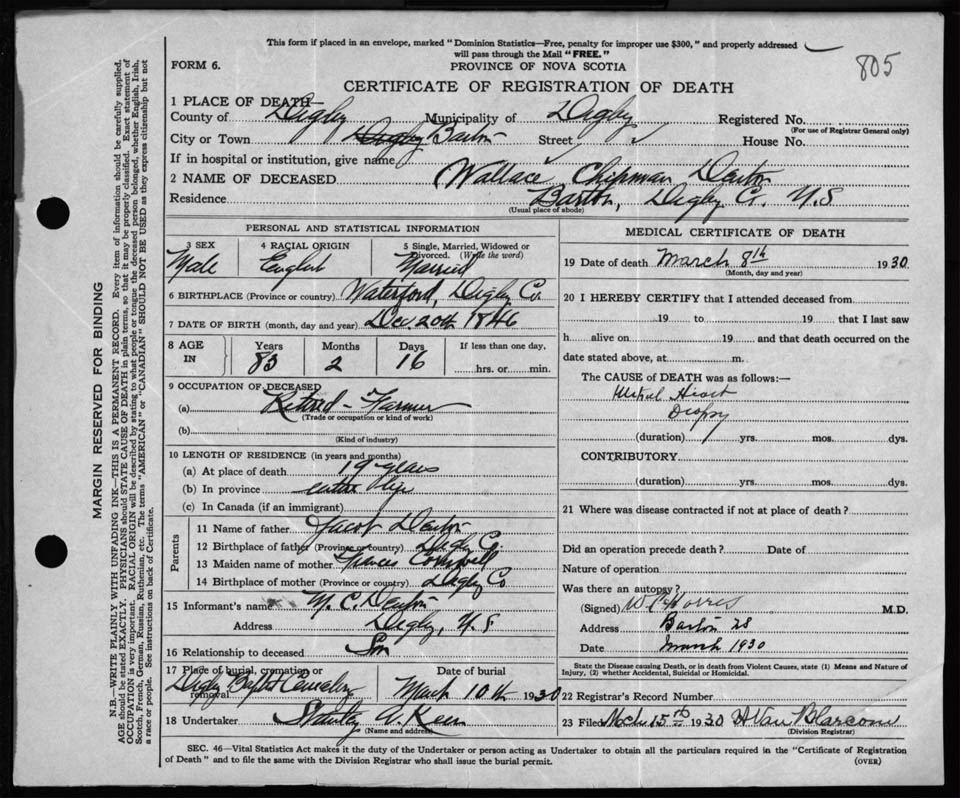 This form if placed in an envelope, marked "Dominion Statistics—Free, penalty for improper use $300," and properly addressed
will pass through the Mail "FREE."
805
FORM 6.
PROVINCE OF NOVA SCOTIA
CERTIFICATE OF REGISTRATION OF DEATH
1 PLACE OF DEATH—
County of Digby Municipality of Digby Registered No.
(For use of Registrar General only)
City or Town Digby Barton Street House No.
If in hospital or institution, give name
2 NAME OF DECEASED Wallace Chipman
Residence Barton, Digby Co. N.S
(Usual place of abode)
PERSONAL AND STATISTICAL INFORMATION
3 SEX 4 RACIAL ORIGIN 5 Single, Married, Widowed or
Divorced. (Write the word)
Male English Married
6 BIRTHPLACE (Province or country) Waterford, Digby Co.
7 DATE OF BIRTH (month, day and year) Dec. 20th 1846
8 AGE IN Years Months Days If less than one day.
83 2 16 hrs. or min.
9 OCCUPATION OF DECEASED
(a) Retired - Farmer
(Trade or occupation or kind of work)
(b)
(Kind of industry)
10 LENGTH OF RESIDENCE (in years and months)
(a) At place of death 19 years
(b) In province entire life
(c) In Canada (if an immigrant)
Parents
11 Name of father Jacob
12 Birthplace of father (Province or country) Digby Co.
13 Maiden name of mother Frances
14 Birthplace of mother (Province or country) Digby Co
15 Informant's name M. C.
Address Digby, N.S
16 Relationship to deceased Son
17 Place of burial, cremation or removal Date of burial
Digby Baptist Cemetery March 10th 1930
18 Undertaker Stanley A. Keen
(Name and address)
MEDICAL CERTIFICATE OF DEATH
19 Date of death March 8th 1930
(Month, day and year)
20 I HEREBY CERTIFY that I attended deceased from
19 to 19 that I last saw
h alive on 19 and that death occurred on the
date stated above, at m.
The CAUSE of DEATH was as follows:—
Mitral Heart
Dropsy
(duration) yrs. mos. dys.
CONTRIBUTORY
(duration) yrs. mos. dys.
21 Where was disease contracted if not at place of death?
Did an operation precede death? Date of
Nature of operation
Was there an autopsy?
(Signed) M.D.
Address Barton 28
Date March 1930
State the Disease causing Death, or in death from Violent Causes, state (1) Means and Nature of
Injury, (2) whether Accidental, Suicidal or Homicidal.
22 Registrar's Record Number
23 Filed Mch 15th 1930 H Van Blarcom
(Division Registrar)
SEC. 46—Vital Statistics Act makes it the duty of the Undertaker or person acting as Undertaker to obtain all the particulars required in the "Certificate of Registration
of Death" and to file the same with the Division Registrar who shall issue the burial permit. (OVER)
MARGIN RESERVED FOR BINDING
N.B.—WRITE PLAINLY WITH UNFADING INK—THIS IS A PERMANENT RECORD. Every item of information should be carefully supplied.
AGE should be stated EXACTLY. PHYSICIANS should STATE CAUSE OF DEATH in plain terms, so that it may be properly classified. Exact statement of
OCCUPATION is very important. RACIAL ORIGIN will be described by stating to what people or tongue the deceased person belonged, whether English, Irish,
Scotch, French, German, Russian, Ruthenian, etc. The terms "AMERICAN" or "CANADIAN" SHOULD NOT BE USED as they express citizenship but not
a race or people. See instructions on back of Certificate.